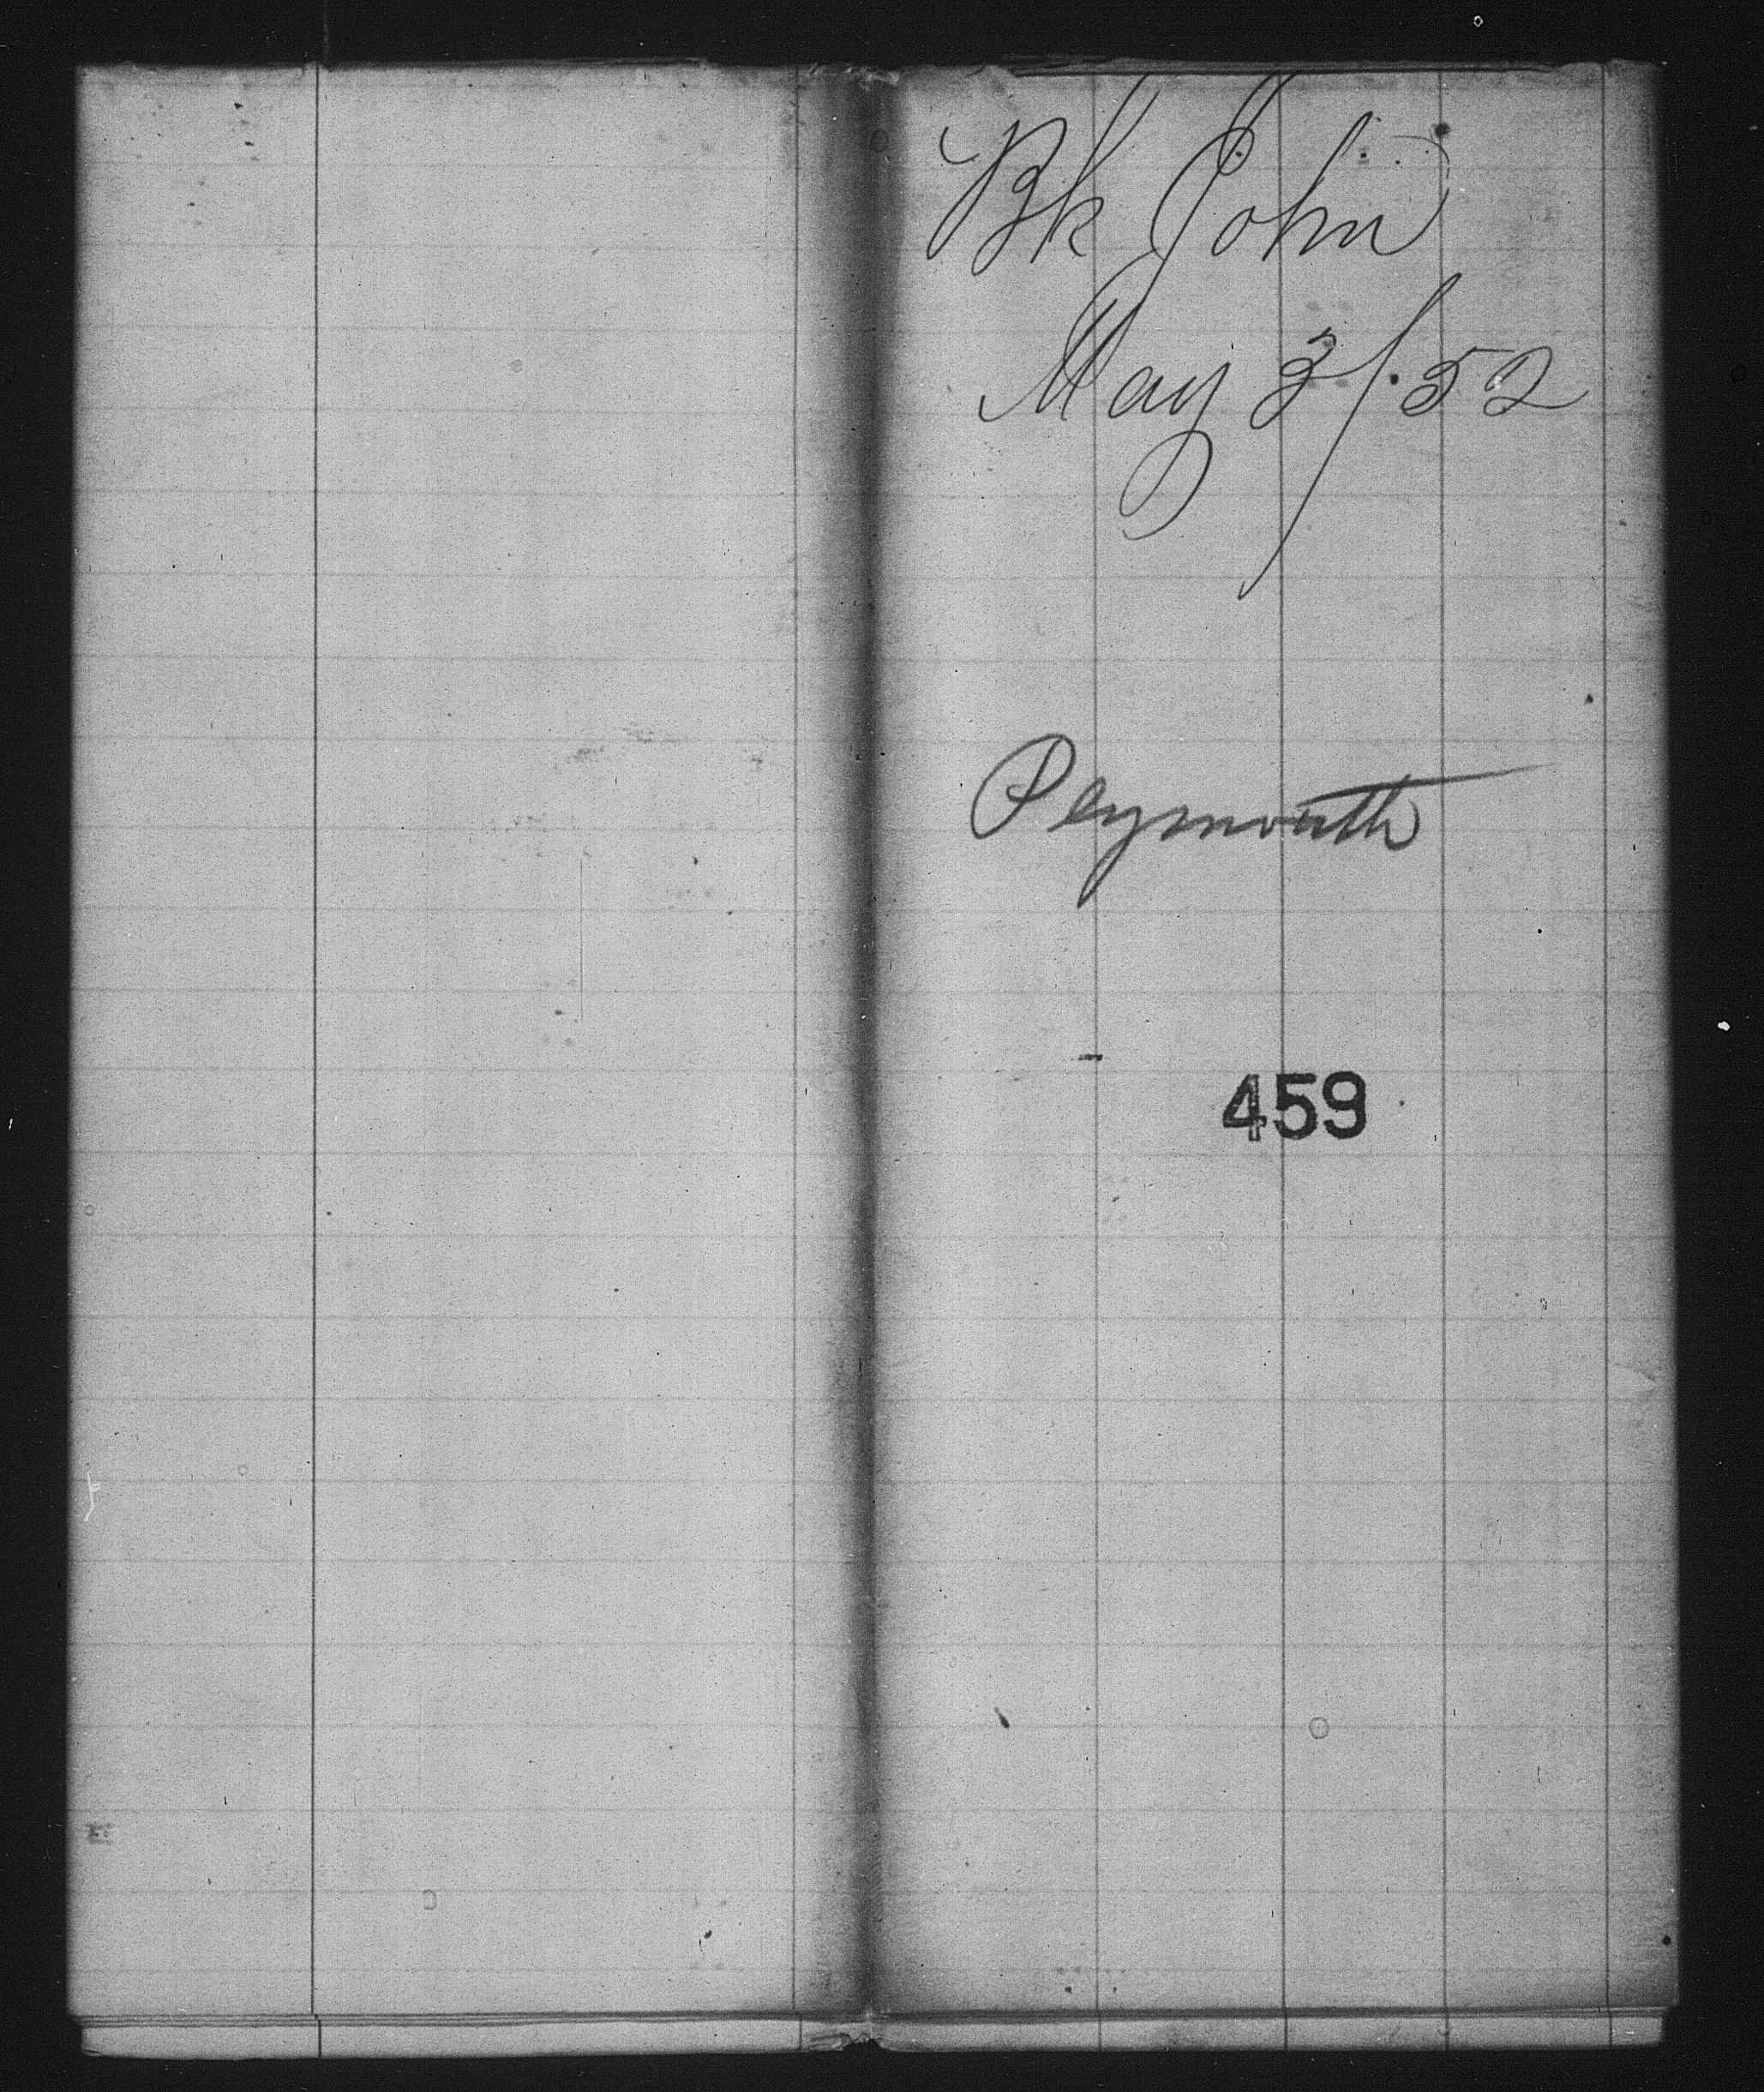 Bk John
May 3/. 52
Plymouth
459